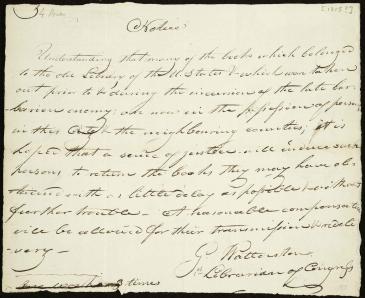 [1815?]
Notice
Understanding that many of the books which belonged
to the old Library of the U. States & which were taken
out prior to & during the incursion of the late bar-
barian enemy, are now in the possession of persons
in this City & the neighbouring counties, it is
hoped that a sense of justice will induce such
persons to return the books they may have ob-
tained with as little delay as possible & without
further trouble - A reasonable compensation
will be allowed for their transmission & redeli-
-very -
Geo Watterston
Librarian of Congress
3 times